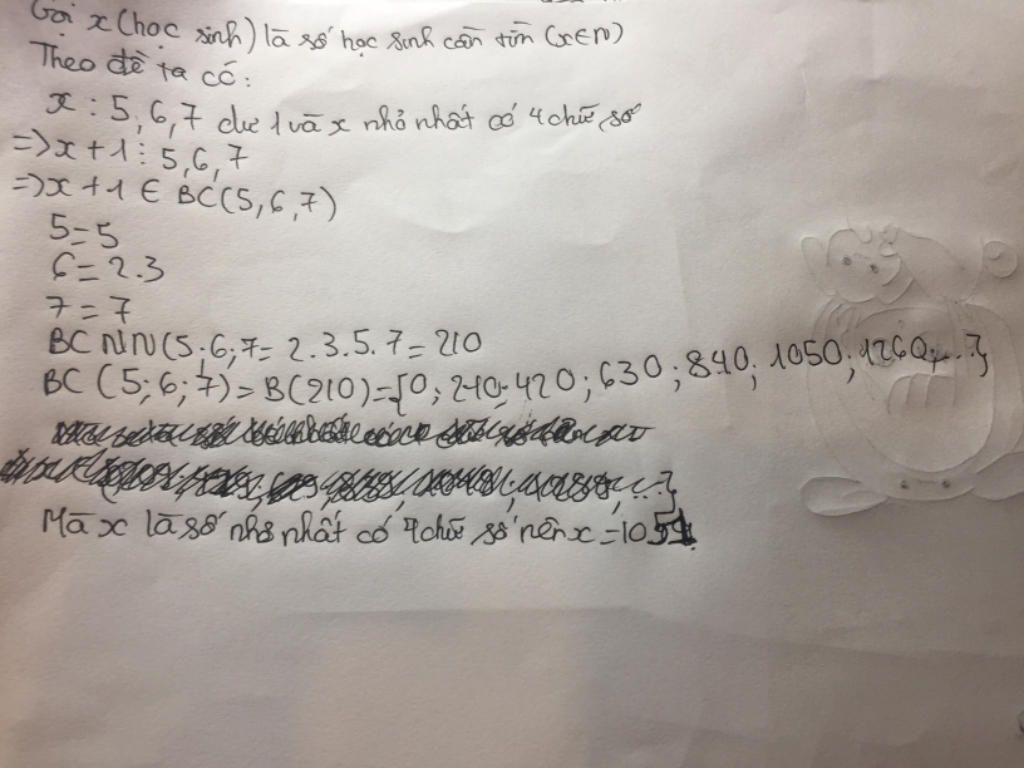 Gọi x (học sinh) là số học sinh cần tìm (x∈N)
Theo đề ta có:
x : 5,6,7 dư 1 và x nhỏ nhất có 4 chữ số
=> x + 1 ⋮ 5,6,7
=> x + 1 ∈ BC(5,6,7)
5 = 5
6 = 2.3
7 = 7
BCNN(5;6;7 = 2.3.5.7 = 210
BC (5;6;7) = B(210) = {0; 210; 420; 630; 840; 1050; 1260;...}
Mà x là số nhỏ nhất có 4 chữ số nên x = 1051